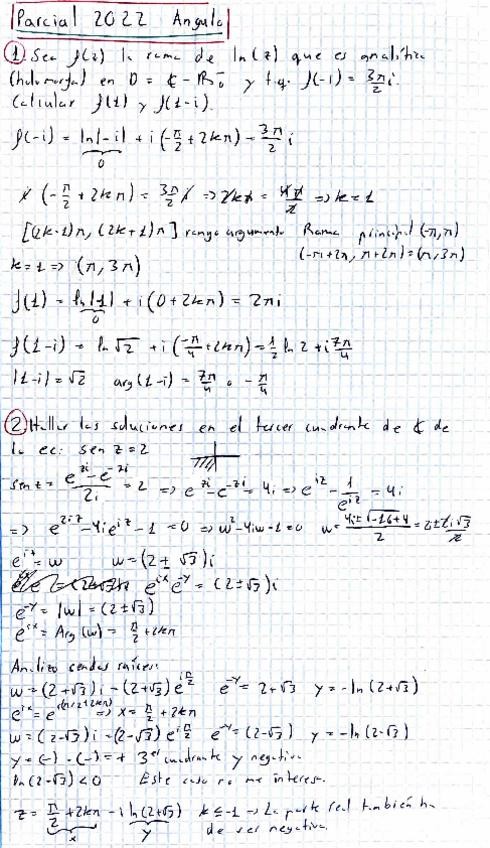 Parcial 2022 Angulo
① Sea f(z) la rama de ln(z) que es analítica
(holomorfa) en D = ℂ - ℝ₀⁻ y t.q. f(-i) = 3π/2 i.
Calcular f(1) y f(1-i).
f(-i) = ln|-i| + i(-π/2 + 2kπ) = 3π/2 i
0
i(-π/2 + 2kπ) = 3π/2 i => 2kπ = 4π/2 => k = 1
[(2k-1)π, (2k+1)π] rango argumento Rama principal (-π, π)
(-π+2π, π+2π) = (π, 3π)
k = 1 => (π, 3π)
f(1) = ln|1| + i(0 + 2kπ) = 2πi
0
f(1-i) = ln √2 + i(-π/4 + 2kπ) = 1/2 ln 2 + i 7π/4
|1-i| = √2 arg(1-i) = 7π/4 o -π/4
② Hallar las soluciones en el tercer cuadrante de ℂ de
la ec: sen z = 2
sen z = (e^{zi} - e^{-zi})/2i = 2 => e^{zi} - e^{-zi} = 4i => e^{iz} - 1/e^{iz} = 4i
=> e^{2iz} - 4ie^{iz} - 1 = 0 => w² - 4iw - 1 = 0 w = (4i ± √(-16+4))/2 = 2 ± 2i√3/2
e^{iz} = w w = (2 ± √3)i
e^{ix} e^{-y} = (2 ± √3)i
e^{-y} = |w| = (2 ± √3)
e^{ix} = Arg(w) = π/2 + 2kπ
Analizo sendas raíces:
w = (2+√3)i = (2+√3) e^{iπ/2} e^{-y} = 2+√3 y = -ln(2+√3)
e^{ix} = e^{i(π/2+2kπ)} => x = π/2 + 2kπ
w = (2-√3)i = (2-√3) e^{iπ/2} e^{-y} = (2-√3) y = -ln(2-√3)
y = (-) · (-) = + 3er cuadrante y negativa
ln(2-√3) < 0 Este caso no me interesa.
z = π/2 + 2kπ - i ln(2+√3) k ≤ -1 -> La parte real también ha
x y de ser negativa.